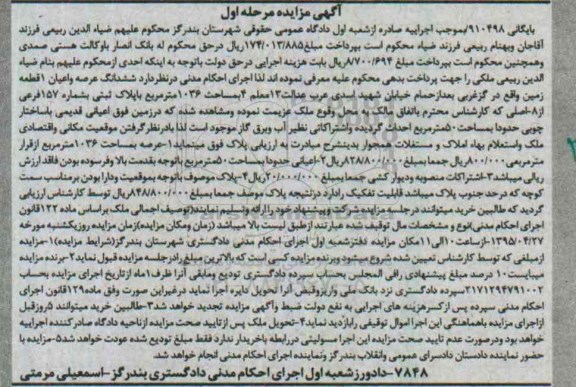 آگهی مزایده مرحله اول
بایگانی ۹۱۰۴۹۸/بموجب اجراییه صادره ازشعبه اول دادگاه عمومی حقوقی شهرستان بندرگز محکوم علیهم ضیاء الدین ربیعی فرزند
آقاجان وبهنام ربیعی فرزند ضیاء محکوم است بپرداخت مبلغ۱۷۴/۰۱۳/۸۸۵ریال درحق محکوم له بانک انصار باوکالت هستی صمدی
وهمچنین محکوم است بپرداخت مبلغ ۸۷۰۰/۶۹۴ریال بابت هزینه اجرایی درحق دولت باتوجه به اینکه احدی ازمحکوم علیهم بنام ضیاء
الدین ربیعی ملکی را جهت پرداخت بدهی محکوم علیه معرفی نموده اند لذا اجرای احکام مدنی درنظردارد ششدانگ عرصه واعیان ۱قطعه
زمین واقع در گزغربی بعدازحمام خیابان شهید اسدی عرب عدالت۱۳معلم ۴بمساحت ۱۰۳۶مترمربع باپلاک ثبتی بشماره ۱۵۷فرعی
از۸-اصلی که کارشناس محترم باتفاق مالکین درمحل وقوع ملک عزیمت نموده ومشاهده شده که درزمین فوق اعیانی قدیمی باساختار
چوبی حدودا بمساحت۵۰مترمربع احداث گردیده واشتراکاتی نظیر آب وبرق گاز موجود است لذا بادرنظرگرفتن موقعیت مکانی واقتصادی
ملک واستعلام بهاء املاک و مستغلات همجوار بدینشرح مبادرت به ارزیابی پلاک فوق مینماید۱-عرصه بمساحت ۱۰۳۶مترمربع ازقرار
مترمربعی۸۰۰/۰۰۰ریال جمعا بمبلغ ۸۲۸/۸۰۰/۰۰۰ریال۲-اعیانی حدودا بمساحت۵۰مترمربع باتوجه بقدمت بالا وفرسوده بودن فاقد ارزش
ریالی میباشد۳-اشتراکات منصوبه ودیوار کشی جمعا بمبلغ ۲۰/۰۰۰/۰۰۰ریال۴-پلاک موصوف باتوجه بموقعیت ودارا بودن برمناسب سمت
کوچه که درحد جنوب پلاک میباشد قابلیت تفکیک را دارد درنتیجه پلاک موصف جمعا بمبلغ ۸۴۸/۸۰۰/۰۰۰ریال توسط کارشناس ارزیابی
گردید که طالبین خرید میتوانند درجلسه مزایده شرکت وپیشنهاد خود را ارائه وتسلیم نمایند توصیف اجمالی ملک براساس ماده ۱۲۲قانون
اجرای احکام مدنی(نوع و مشخصات مال توقیف شده عبارتند ازطبق لیست بالا میباشد (زمان ومکان مزایده)زمان مزایده روزیکشنبه مورخه
۱۳۹۵/۰۴/۲۷-ازساعت ۱۰الی۱۱مکان مزایده دفترشعبه اول اجرای احکام مدنی دادگستری شهرستان بندرگز(شرایط مزایده)۱-مزایده
ازمبلغی که توسط کارشناس تعیین شده شروع میشود وبرنده مزایده کسی است که بالاترین مبلغ رادرجلسه مزایده قبول نماید۲-برنده مزایده
میبایست۱۰ درصد مبلغ پیشنهادی رافی المجلس بحساب سپرده دادگستری تودیع ومابقی آنرا ظرف ۱ماه ازتاریخ اجرای مزایده بحساب
۲۱۷۱۲۹۴۷۹۱۰۰۲سپرده دادگستری نزد بانک ملی واریزوقبض آنرا تحویل دایره اجرا نماید درغیراین صورت وفق ماده ۱۲۹قانون اجرای
احکام مدنی سپرده پس ازکسرهزینه های اجرایی به نفع دولت ضبط وآگهی مزایده تجدید خواهد شد۳-طالبین خرید میتوانند ۵روزقبل
ازاجرای مزایده باهماهنگی این اجرا اموال توقیفی رابازدید نماید۴-تحویل ملک پس ازتایید صحت مزایده ازناحیه دادگاه صادرکننده اجراییه
خواهد بود ودرصورت عدم تایید صحت مزایده این اجرا مسولیتی دررابطه باخریدار ندارد فقط مبلغ تودیع شده عودت خواهد شد۵-مزایده با
حضور نماینده دادستان دادسرای عمومی وانقلاب بندر گز ونماینده اجرای احکام مدنی انجام خواهد شد.
۷۸۴۸-دادورزشعبه اول اجرای احکام مدنی دادگستری بندرگز-اسمعیلی مرمتی